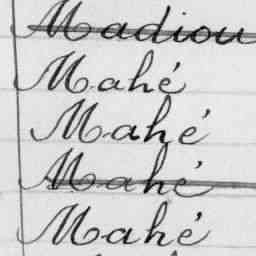 Madiou
Mahé
Mahé
Mahé
Mahé